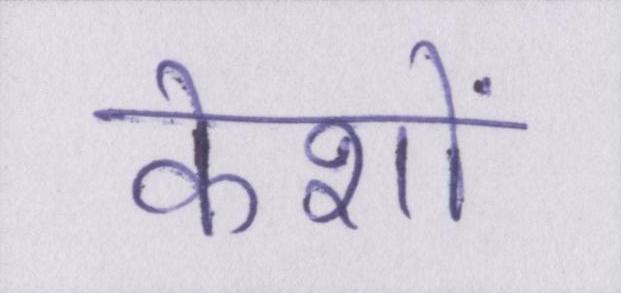 केशों